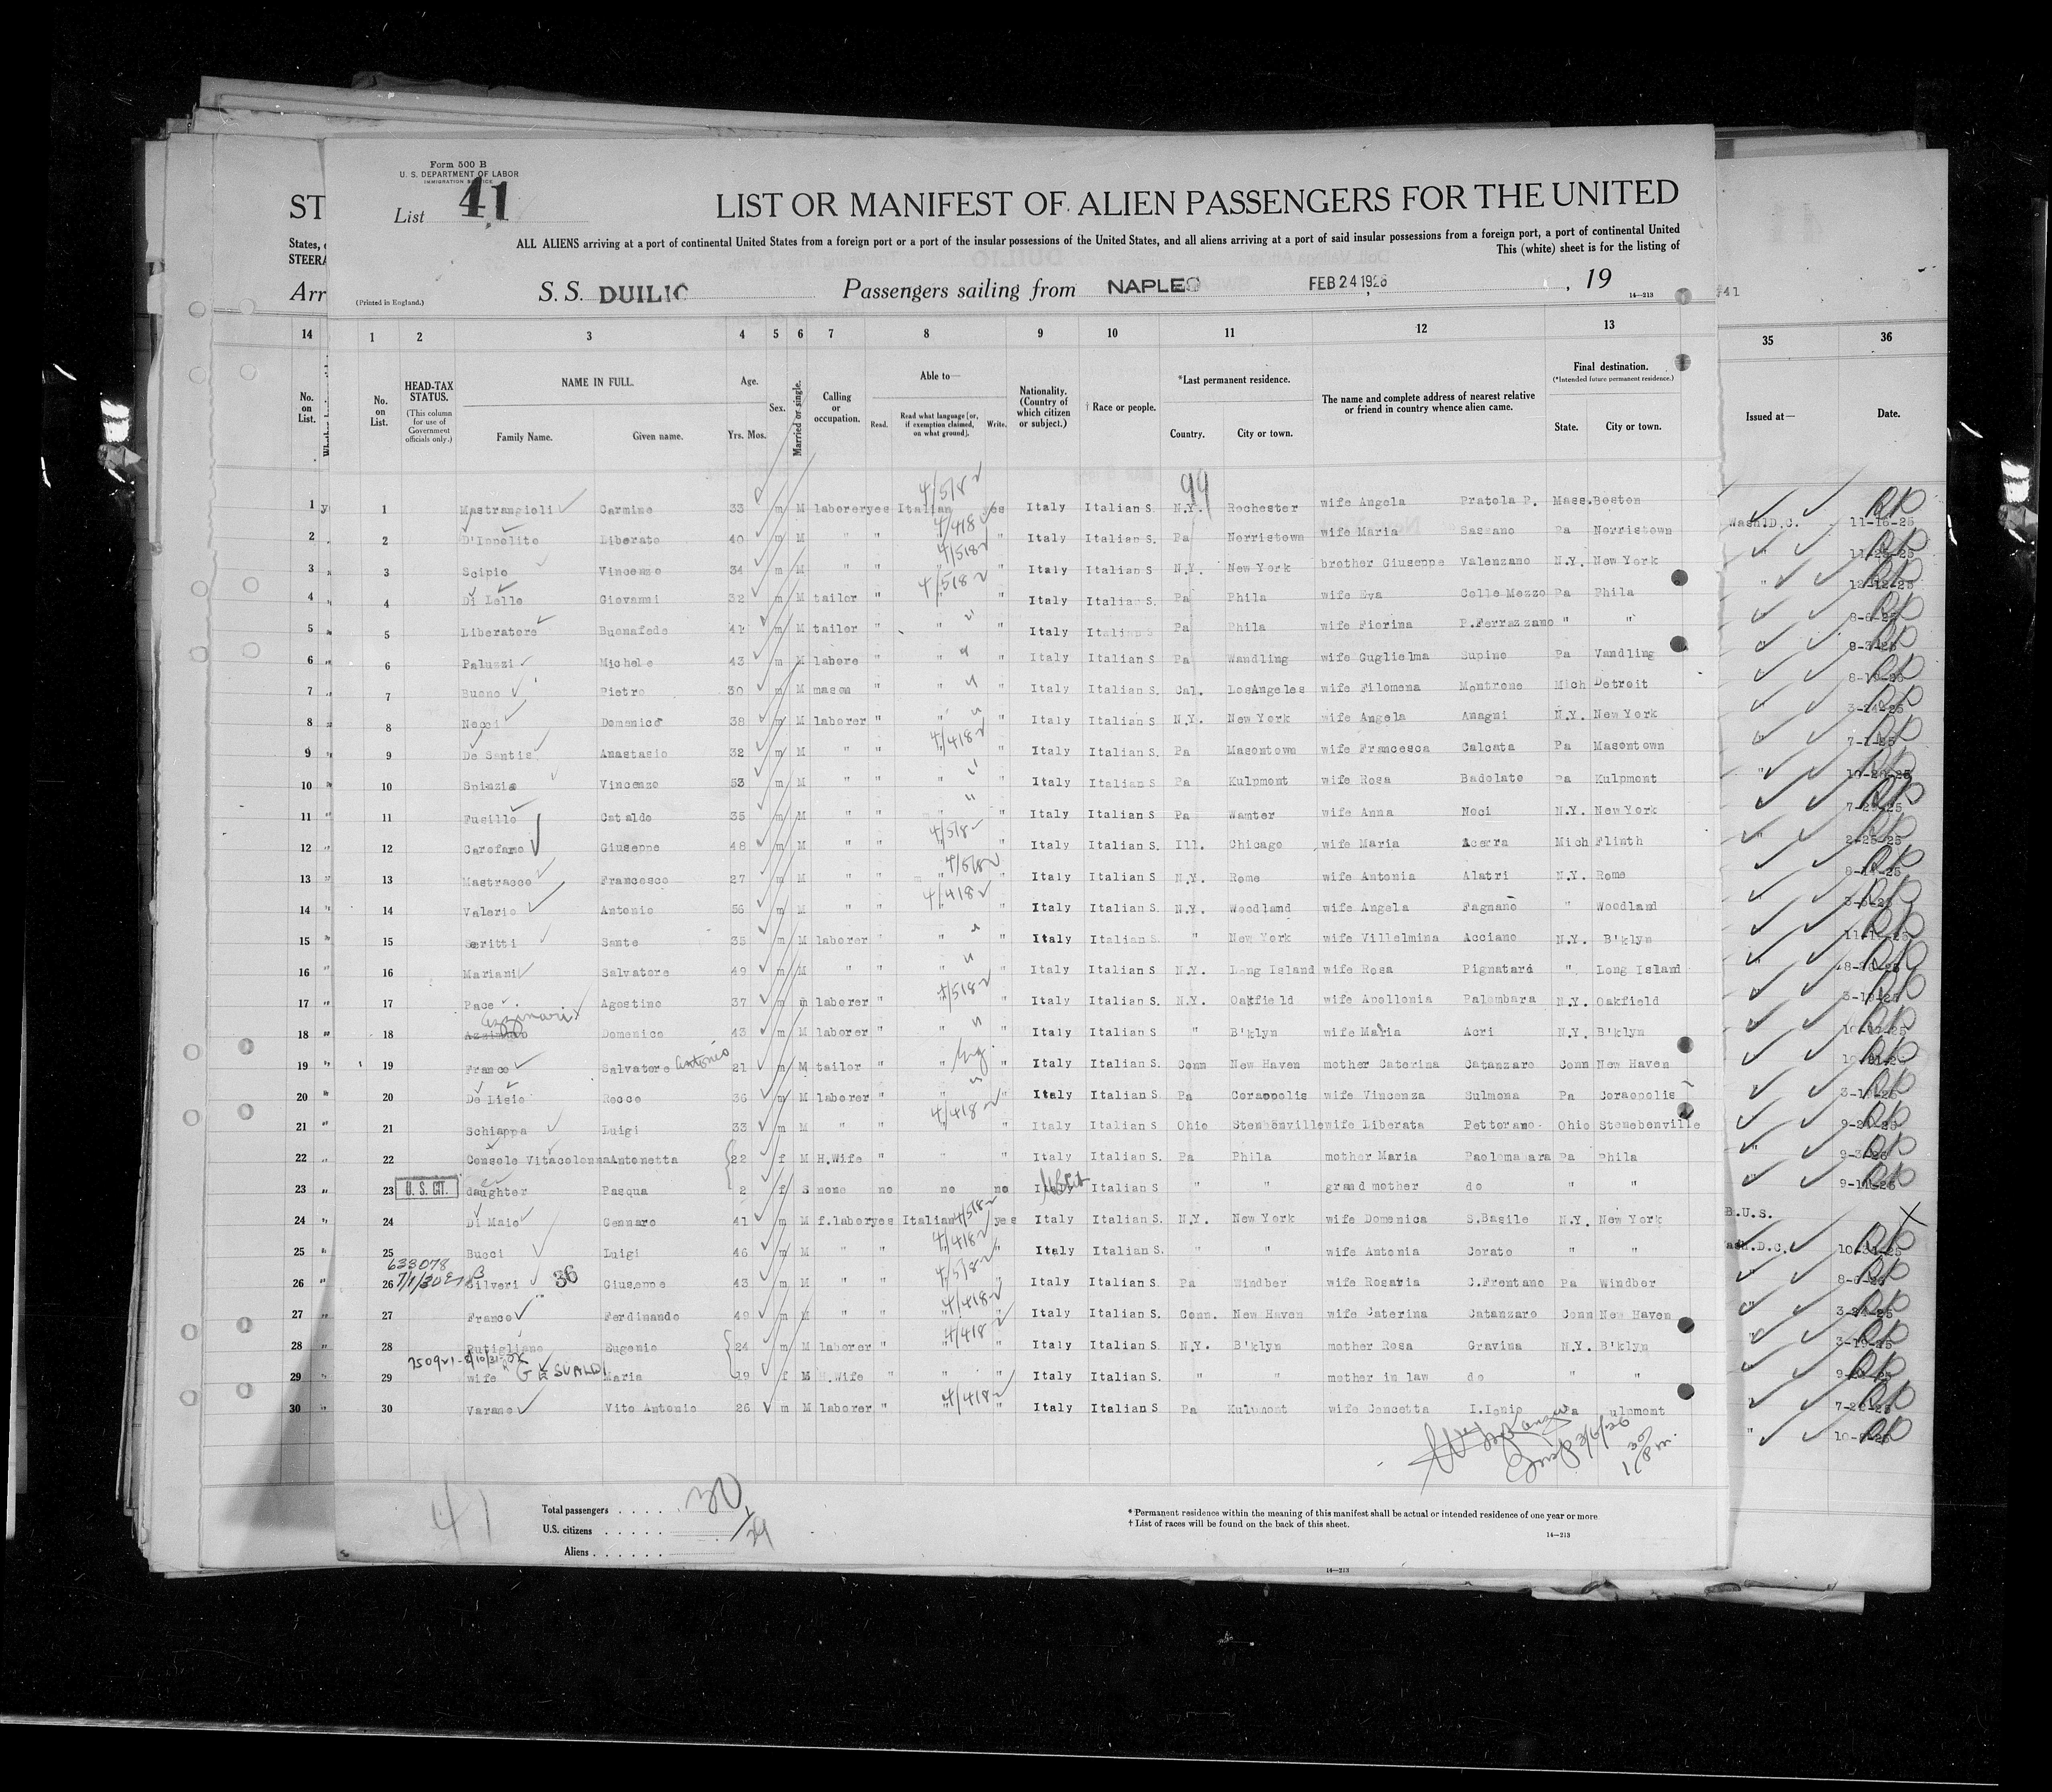 Form 500 B
U. S. DEPARTMENT OF LABOR
IMMIGRATION SERVICE
ST
List 41
LIST OR MANIFEST OF ALIEN PASSENGERS FOR THE UNITED
States,
STEERA
ALL ALIENS arriving at a port of continental United States from a foreign port or a port of the insular possessions of the United States, and all aliens arriving at a port of said insular possessions from a foreign port, a port of continental United
This (white) sheet is for the listing of
Arr
(Printed in England.)
S. S. DUILIO Passengers sailing from NAPLES FEB 24 1926, 19
14—213
41
14 1 2 3 4 5 6 7 8 9 10 11 12 13 35 36
No. on List.
No. on List.
HEAD-TAX STATUS.
(This column for use of Government officials only.)
NAME IN FULL.
Family Name. Given name.
Age.
Yrs. Mos.
Sex.
Married or single.
Calling or occupation.
Able to—
Read. Read what language [or, if exemption claimed, on what ground]. Write.
Nationality. (Country of which citizen or subject.)
† Race or people.
*Last permanent residence.
Country. City or town.
The name and complete address of nearest relative or friend in country whence alien came.
Final destination.
(*Intended future permanent residence.)
State. City or town.
Issued at— Date.
99
1 1 Mastrangioli Carmine 33 m M laborer yes Italian 4/518 yes Italy Italian S N.Y. Rochester wife Angela Pratola P. Mass. Boston
2 2 D'Ippolito Liberato 40 m M " " 4/418 " Italy Italian S. Pa Norristown wife Maria Sassano Pa Norristown
3 3 Scipio Vincenzo 34 m M " " 4/518 " Italy Italian S N.Y. New York brother Giuseppe Valenzano N.Y. New York
4 4 Di Lello Giovanni 32 m M tailor " 4/518 " Italy Italian S. Pa Phila wife Eva Colle Mezzo Pa Phila
5 5 Liberatore Buonafede 41 m M tailor " " " Italy Italian S Pa Phila wife Fiorina P.Ferrazzano " "
6 6 Paluzzi Michele 43 m M labore " " " Italy Italian S Pa Wandling wife Guglielma Supino Pa Vandling
7 7 Buono Pietro 30 m M mason " " " Italy Italian S. Cal. LosAngeles wife Filomena Montrone Mich Detroit
8 8 Necci Domenico 38 m M laborer " " " Italy Italian S. N.Y. New York wife Angela Anagni N.Y. New York
9 9 De Santis Anastasio 32 m M " " 4/418 " Italy Italian S. Pa Masontown wife Francesca Calcata Pa Masontown
10 10 Spinzia Vincenzo 53 m M " " " " Italy Italian S Pa Kulpmont wife Rosa Badolato Pa Kulpmont
11 11 Fusillo Cataldo 35 m M " " " " Italy Italian S Pa Wamter wife Anna Noci N.Y. New York
12 12 Carofano Giuseppe 48 m M " " 4/518 " Italy Italian S. Ill. Chicago wife Maria Acerra Mich Flinth
13 13 Mastracco Francesco 27 m M " " 4/518 " Italy Italian S. N.Y. Rome wife Antonia Alatri N.Y. Rome
14 14 Valerio Antonio 56 m M " " 4/418 " Italy Italian S. N.Y. Woodland wife Angela Fagnano " Woodland
15 15 Scritti Sante 35 m M laborer " " " Italy Italian S. " New York wife Villelmina Acciano N.Y. B'klyn
16 16 Mariani Salvatore 49 m M " " " " Italy Italian S. N.Y. Long Island wife Rosa Pignatard " Long Island
17 17 Pace Agostino 37 m m laborer " 4/518 " Italy Italian S. N.Y. Oakfield wife Apollonia Palombara N.Y. Oakfield
Azzinari
18 18 Domenico 43 m M laborer " " " Italy Italian S. " B'klyn wife Maria Acri N.Y. B'klyn
19 19 Franco Salvatore Antonio 21 m M tailor " Eng. " Italy Italian S. Conn New Haven mother Caterina Catanzaro Conn New Haven
20 20 De Lisio Rocco 36 m M laborer " " " Italy Italian S. Pa Coraopolis wife Vincenza Sulmona Pa Coraopolis
21 21 Schiappa Luigi 33 m M " " 4/418 " Italy Italian S Ohio Stenbenville wife Liberata Pettorano Ohio Stenebenville
22 22 Console Vitacolonna Antonetta 22 f M H.Wife " " " Italy Italian S. Pa Phila mother Maria Paolomabara Pa Phila
23 23 U. S. CIT. daughter Pasqua 2 f S none no no no Italy Italian S " " grand mother do " "
24 24 Di Maio Gennaro 41 m M f.labor yes Italian 4/518 yes Italy Italian S. N.Y. New York wife Domenica S.Basile N.Y. New York
25 25 Bucci Luigi 46 m M " " 4/418 " Italy Italian S. " " wife Antonia Corato " "
633078
7/1/30
26 26 Silveri 36 Giuseppe 43 m M " " 4/518 " Italy Italian S Pa Windber wife Rosaria C.Frentano Pa Windber
27 27 Franco Ferdinando 49 m M " " 4/418 " Italy Italian S. Conn. New Haven wife Caterina Catanzaro Conn New Haven
28 28 Rutigliano Eugenio 24 m M laborer " 4/418 " Italy Italian S. N.Y. B'klyn mother Rosa Gravina N.Y. B'klyn
29 29 wife GESUALDI Maria 19 f M H.Wife " " " Italy Italian S. " " mother in law do " "
30 30 Varano Vito Antonio 26 m M laborer " 4/418 " Italy Italian S Pa Kulpmont wife Concetta I.Ionio Pa ulpmont
Wash.D.C. 11-16-25
" 11-25-25
" 12-12-25
B.U.S.
Wash.D.C. 10-31-25
3/6/26
1 30 P.m.
41
Total passengers 30
U.S. citizens 1
Aliens 29
* Permanent residence within the meaning of this manifest shall be actual or intended residence of one year or more
† List of races will be found on the back of this sheet.
14—213
14—213